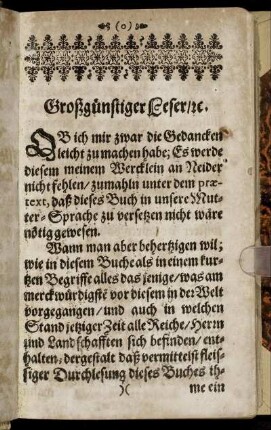 (o)
Großgünstiger Leser/ꝛc.
OB ich mir zwar die Gedancken
leicht zu machen habe; Es werde
diesem meinem Wercklein an Neider
nicht fehlen/ zumahln unter dem præ-
text, daß dieses Buch in unsere Mut-
ter-Sprache zu versetzen nicht wäre
nötig gewesen.
Wann man aber behertzigen wil;
wie in diesem Buche als in einem kur-
tzen Begriffe alles das jenige/ was am
merckwürdigstē vor diesem in der Welt
vorgegangen/ und auch in welchen
Stand jetziger Zeit alle Reiche/ Herrn
und Landschafften sich befinden/ ent-
halten; dergestalt daß vermittelst fleis-
siger Durchlesung dieses Buches ih-
)( me ein